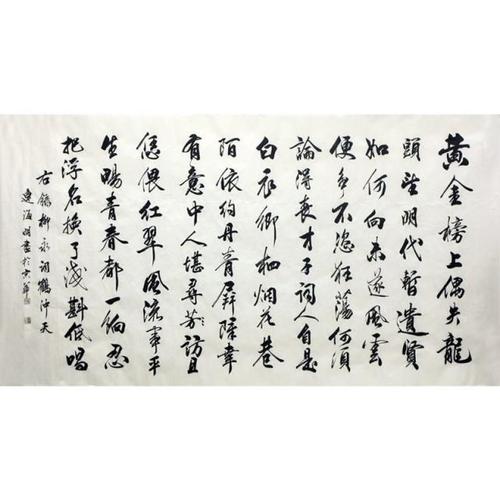 黄金榜上偶失龍
頭望明代暫遺賢
如何向未遂風雲
便爭不恣狂蕩何須
論得喪才子詞人自是
白衣卿相烟花巷
陌依約丹青屏障幸
有意中人堪尋芳訪且
恁偎紅翠風流事平
生暢青春都一餉忍
把浮名換了淺斟低唱
右錄柳永詞鶴冲天
海明書於